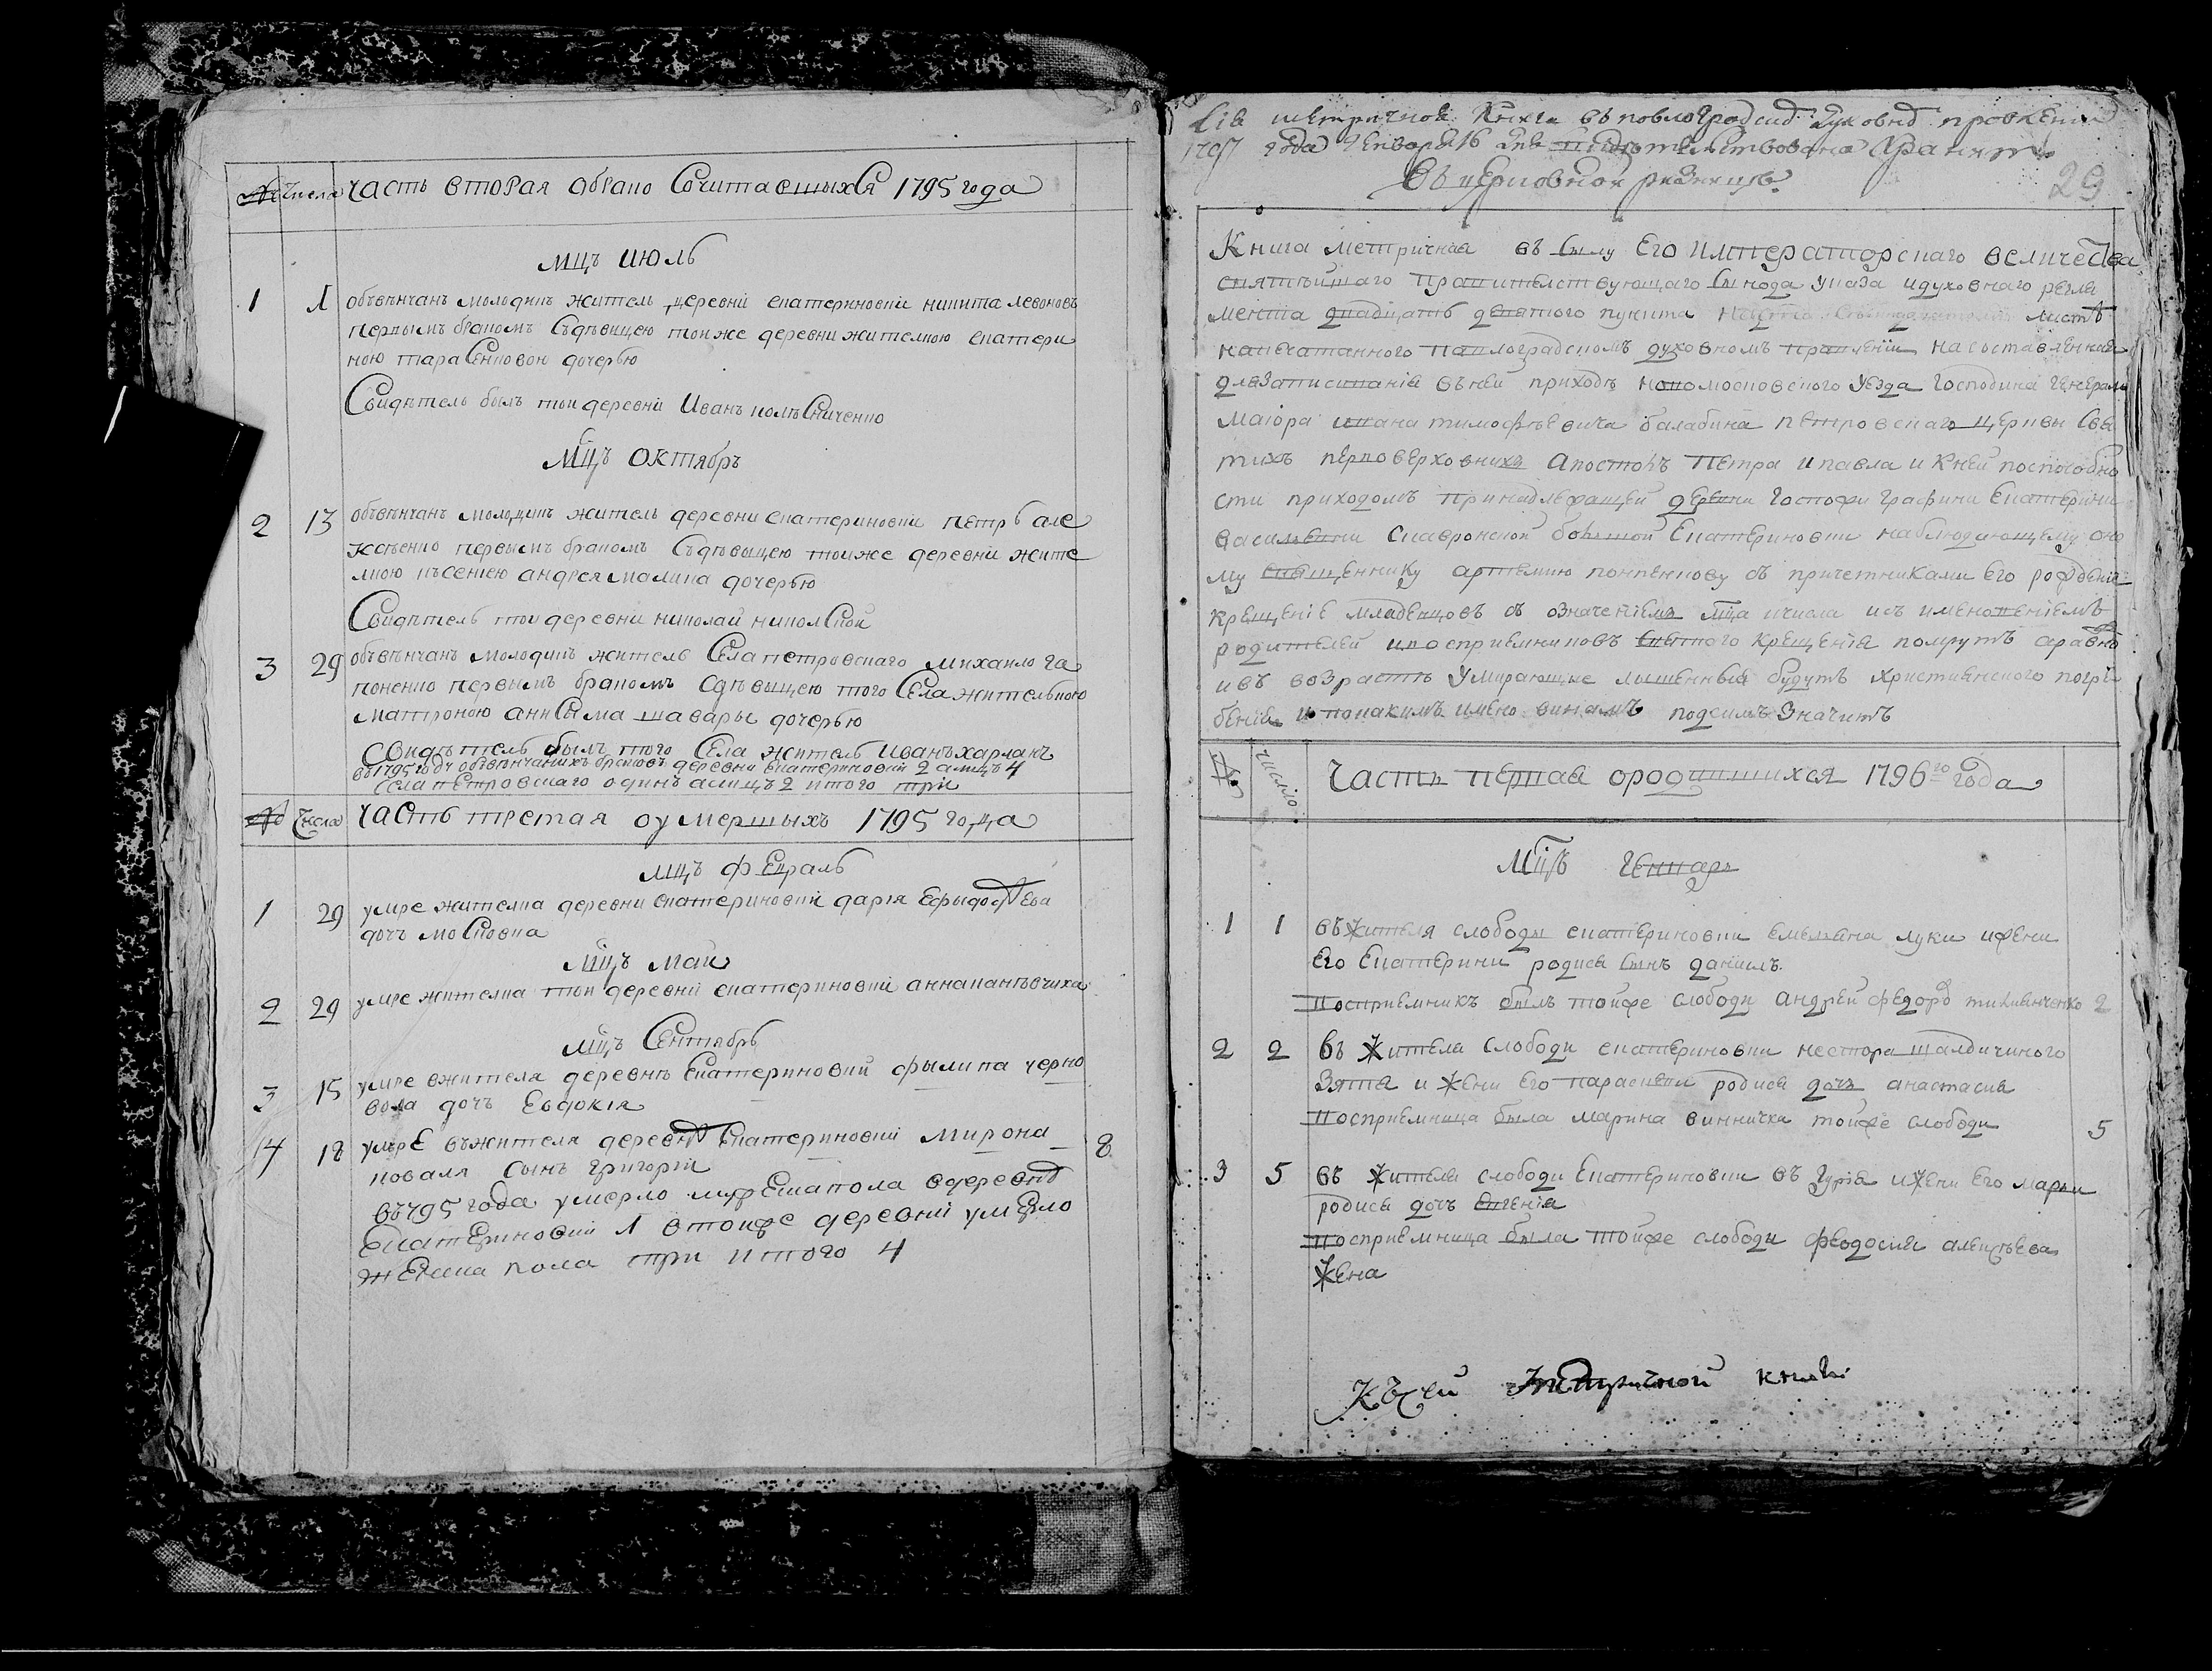 № числа часть вторая обрако Сочитавшыхся 1795 года
мцъ июль
1 1 объвѣнчанъ молодикъ житель деревнѣ екатериновки никита левоновъ
первымъ бракомъ Съдѣвицею тоиже деревни жителкою екатери
ною тараСенковою дочерью
Свидѣтель былъ тои деревнѣ Иванъ
мцъ октябрь
2 13 объвѣнчанъ молодикъ житель деревни екатериновки петръ але
ксѣенко первымъ бракомъ Съдѣвыцею тоиже деревни жите
лкою ксениею андрея малика дочерью
Свидѣтель тои деревни николаи
3 29 объвѣнчанъ молодикъ житель Села петровскаго михаило га
поненко первымъ бракомъ Сдѣвыцею того Села жителькою
матроною аниСыма шавары дочерью
Свидѣтель былъ того Села житель Иванъ харланъ
въ1795 году обвѣнчаныхъ браковъ деревни екатериновки 2 алицъ 4
Села петровскаго одинъ алицъ 2 итого три
№ Числа Часть третая оумершыхъ 1795 года
мцъ февраль
1 29 умре жителка деревни екатериновки дария
дочъ моСковка
мцъ маи
2 29 умре жителка тои деревнѣ екатериновки анна
мцъ Сентябрь
3 15 умре вжителя деревнѣ Екатериновки фылипа черно
вола дочъ Евдокия
4 18 умре въжителя деревнѣ Екатериновки мирона 8
коваля сынъ григорий
въ795 года умерло мужеска пола вдеревнѣ
Екатериновки 1 втоиже деревнѣ умерло
женска пола три итого 4
Сія метричная Книга въ павлоградскомъ духовномъ правленіи
1797 года Генваря 16 дня свидетелствована хранить
Въ церковной ризницѣ.
29
Книга метричная въ Сылу Его императорскаго величества
святѣйшаго правителствующаго Сынода указа идуховнаго регла
мента двадцать девятого пункта листѣ
напечатанного павлоградскомъ духовномъ правленіи насоставленная
длязаписиванія въней приходъ новомосковского уезда господина генерала
маіора ивана тимофѣевича балабина петровскаго церкви Свя
тихъ первоверховнихъ апостолъ петра ипавла икней поспособно
сти приходомъ принадлежащей деревни госпожи графини Екатерини
василевни Скавронской болшой Екатериновки наблюдающему оно
му священнику артемию съ причетниками его рожденіе
крещеніе младенцовъ съ означеніемъ мца ичисла исъ именованіемъ
родителей ивосприемниковъ святого крещенія помрутъ аравно
ивъ возрастѣ Умирающіе лышенныя будутъ христианского погре
бенія и покакимъ имено винамъ подсимъ значитъ
№ Число Часть первая ородившихся 1796го года
мцъ Генварь
1 1 въжителя слободы екатериновки емеляна луки ижени
Его Екатерини родися Сынъ даніилъ.
восприемникъ былъ тойже слободи андрей федоръ 2
2 2 Въ жителя слободи екатериновки нестора
Зятя и жени Его параскеви родися дочъ анастасия
восприемница была марина винничка тойже слободи 5
3 5 въ жителя слободи Екатериновки въ Гурія ижени его марии
родися дочъ евгенія
восприемница была тойже слободи феодосия алексѣева
жена
Къ сей метричной книги